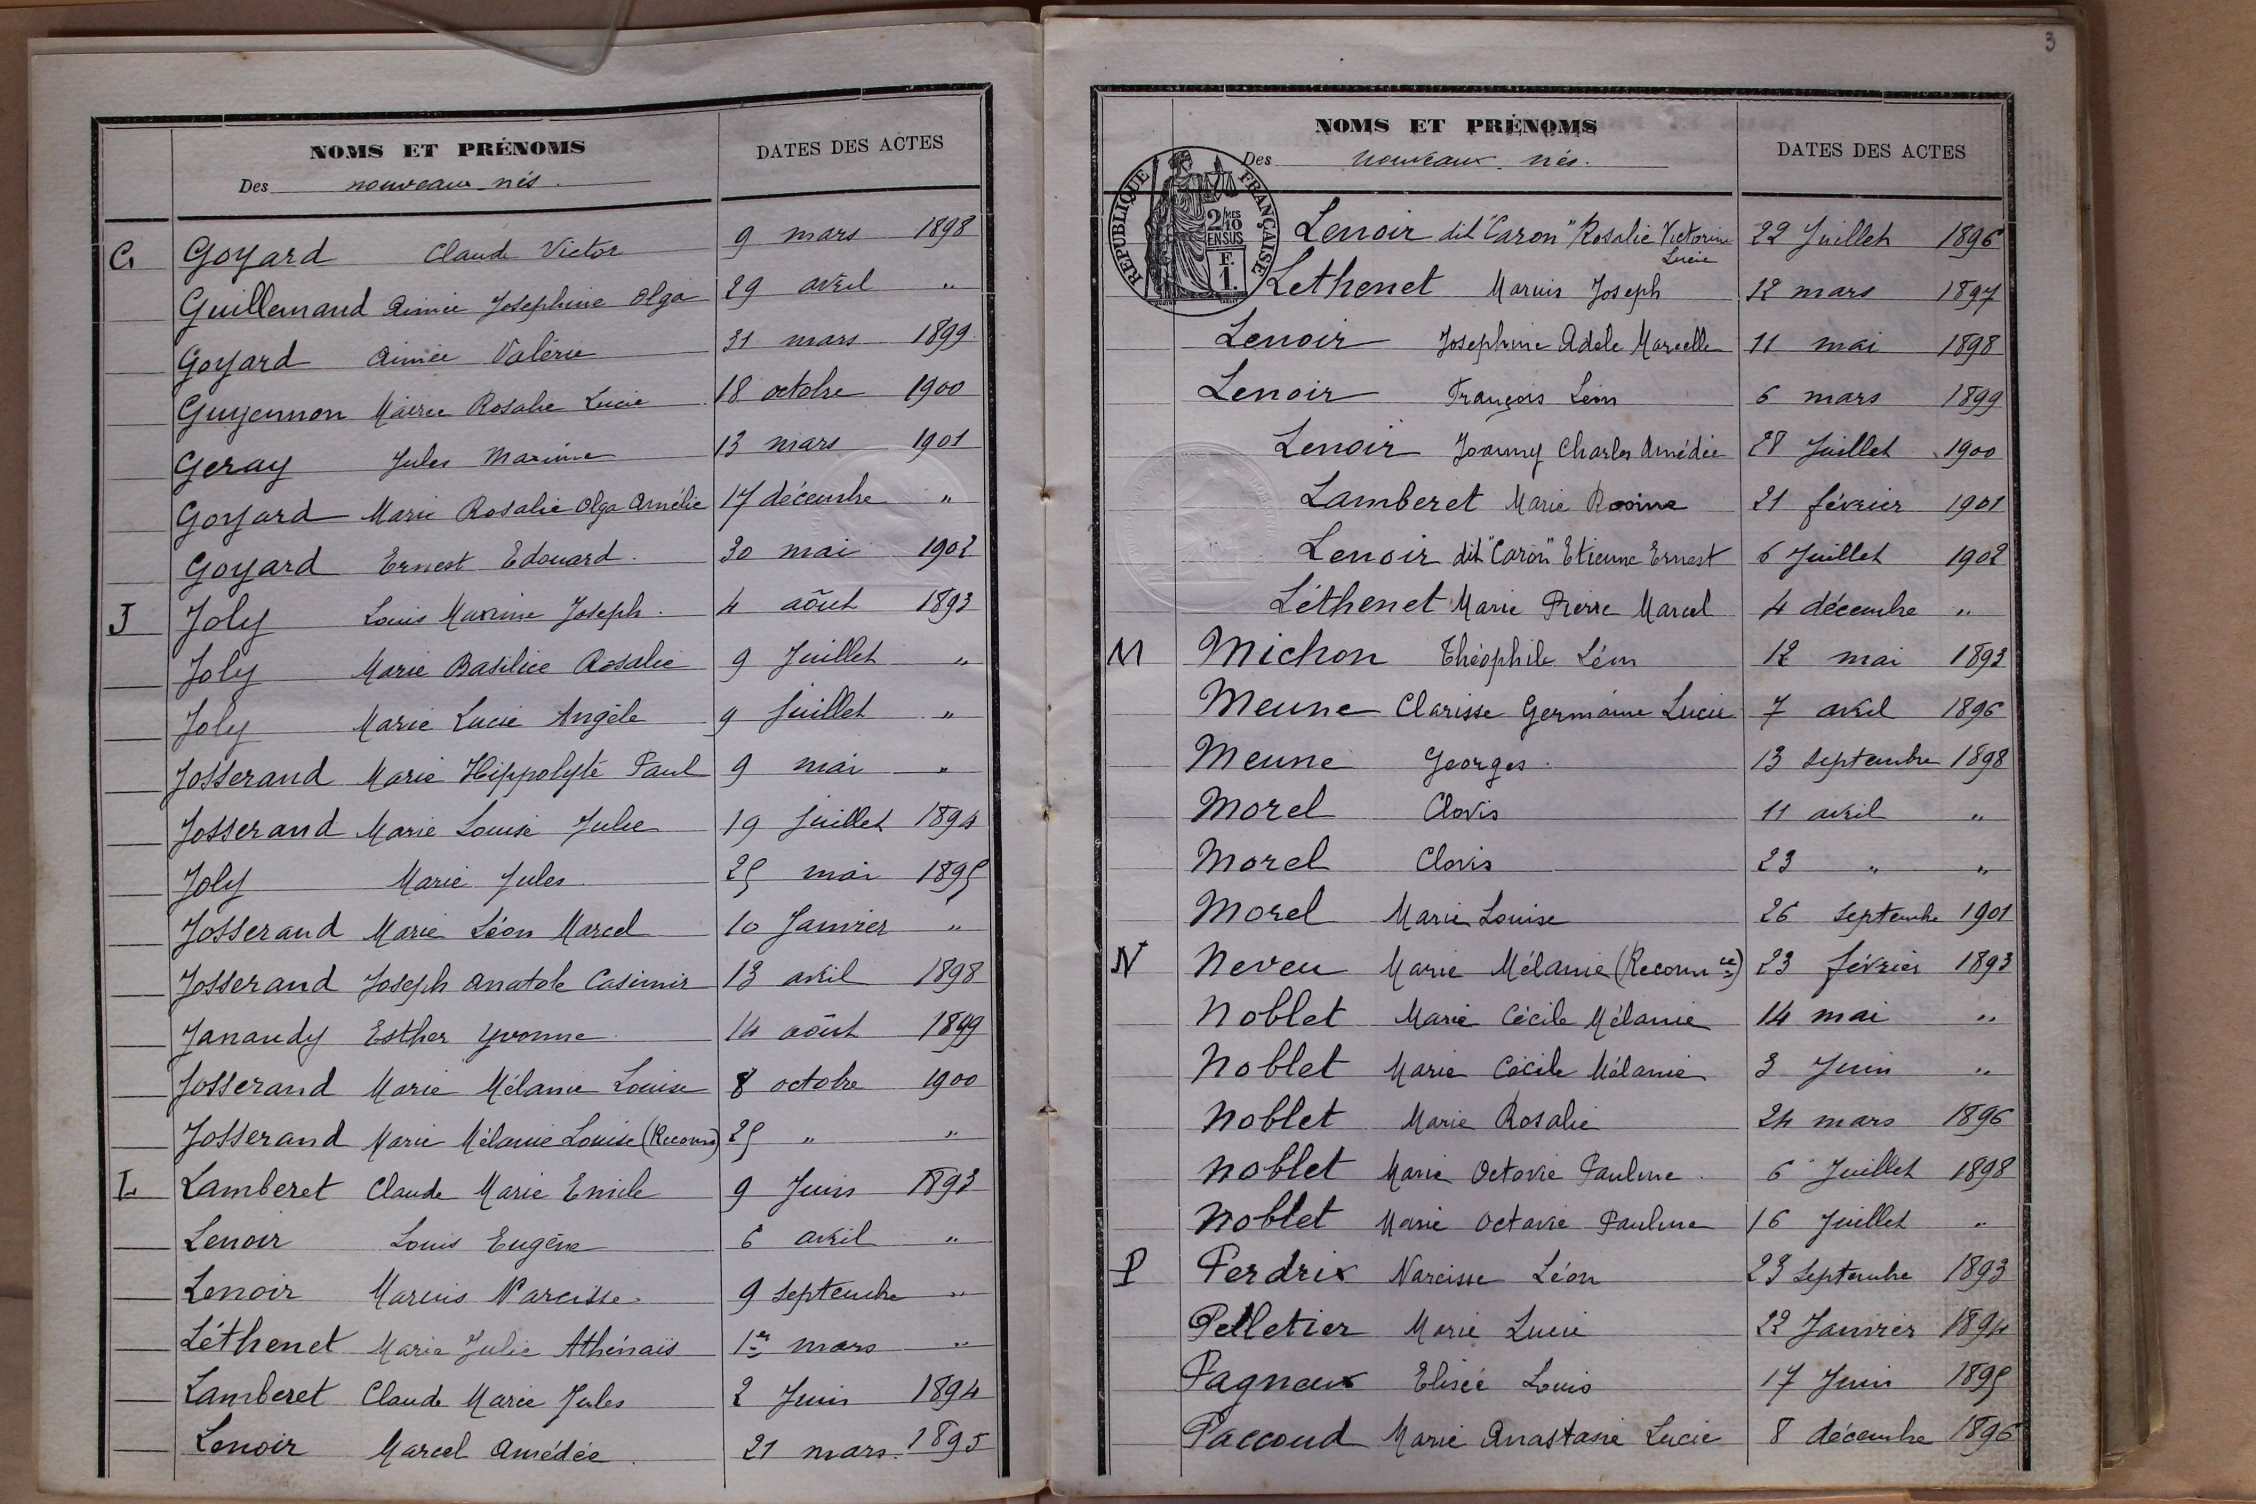 NOMS ET PRÉNOMS
DATES DES ACTES
Des nouveaux nés.
G Goyard Claude Victor 9 mars 1898
Guillemaud Aimée Joséphine Olga 29 avril "
Goyard Aimée Valérie 31 mars 1899
Guyennon Marie Rosalie Lucie 18 octobre 1900
Geray Jules Maxime 13 mars 1901
Goyard Marie Rosalie Olga Amélie 17 décembre "
Goyard Ernest Edouard. 30 mai 1902
J Joly Louis Maxime Joseph. 4 août 1893
Joly Marie Basilice Rosalie 9 Juillet "
Joly Marie Lucie Angèle 9 Juillet "
Josserand Marie Hippolyte Paul 9 mai "
Josserand Marie Louise Julie 19 Juillet 1894
Joly Marie Jules 25 mai 1895
Josserand Marie Léon Marcel 10 Janvier "
Josserand Joseph Anatole Casimir 13 avril 1898
Janaudy Esther Yvonne 14 août 1899
Josserand Marie Mélanie Louise 8 octobre 1900
Josserand Marie Mélanie Louise (Reconn) 25 " "
L Lamberet Claude Marie Emile 9 Juin 1893
Lenoir Louis Eugène 6 avril "
Lenoir Marius Narcisse. 9 Septembre "
Léthenet Marie Julie Athénaïs 1er mars "
Lamberet Claude Marie Jules 2 Juin 1894
Lenoir Marcel Amédée 21 mars. 1895
3
NOMS ET PRÉNOMS
DATES DES ACTES
Des nouveaux nés.
RÉPUBLIQUE FRANÇAISE
2/10 MES
EN SUS
F.
1.
Lenoir dit "Caron" Rosalie Victorine 22 Juillet 1896
Lucie
Lethenet Marius Joseph 12 mars 1897
Lenoir Josephine Adele Marcelle 11 mai 1898
Lenoir François Léon 6 mars 1899
Lenoir Joanny Charles Amédée 28 Juillet 1900
Lamberet Marie Rosine 21 février 1901
Lenoir dit "Caron" Etienne Ernest 6 Juillet 1902
Léthenet Marie Pierre Marcel 4 décembre "
M Michon Théophile Léon 12 mai 1893
Meune Clarisse Germaine Lucie 7 avril 1896
Meune Georges. 13 Septembre 1898
Morel Clovis 11 avril "
Morel Clovis 23 " "
Morel Marie Louise 26 Septembre 1901
N Neveu Marie Mélanie (Reconnce) 23 février 1893
Noblet Marie Cécile Mélanie 14 mai "
Noblet Marie Cécile Mélanie 3 Juin "
Noblet Marie Rosalie 24 mars 1896
Noblet Marie Octavie Pauline. 6 Juillet 1898
Noblet Marie Octavie Pauline 16 Juillet "
P Perdrix Narcisse Léon 23 Septembre 1893
Pelletier Marie Lucie 22 Janvier 1894
Pagneux Elisée Louis 17 Juin 1895
Paccoud Marie Anastasie Lucie 8 décembre 1896